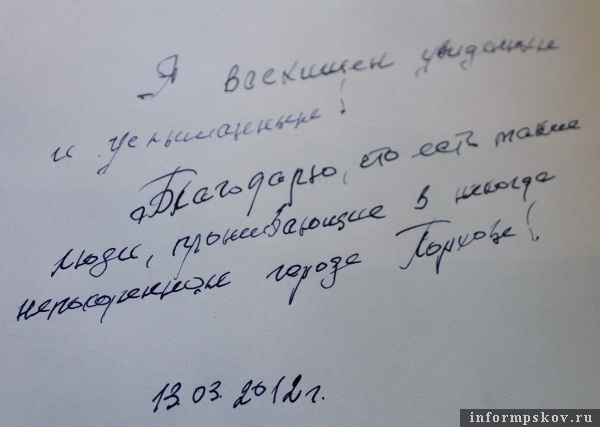 Я восхищен увиденным
и услышанным!
Благодарю, что есть такие
люди, проживающие в некогда
непокоренном городе Порхове!
13.03.2012г.
informpskov.ru